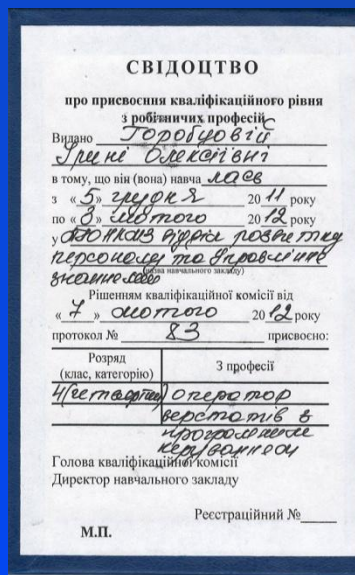 СВІДОЦТВО
про присвоєння кваліфікаційного рівня
з робітничих професій
Видано Горобцовій
Ірині Олексіївні
в тому, що він (вона) навча лась
з «5» грудня 2011 року
по «3» лютого 2012 року
у відділ розвитку
персоналу та управління
знаннями
(назва навчального закладу)
Рішенням кваліфікаційної комісії від
«7» лютого 2012 року
протокол № 83 присвоєно:
Розряд
(клас, категорію)
З професії
4(четвертий) оператор
верстатів з
програмним
керуванням
Голова кваліфікаційної комісії
Директор навчального закладу
Реєстраційний №
М.П.